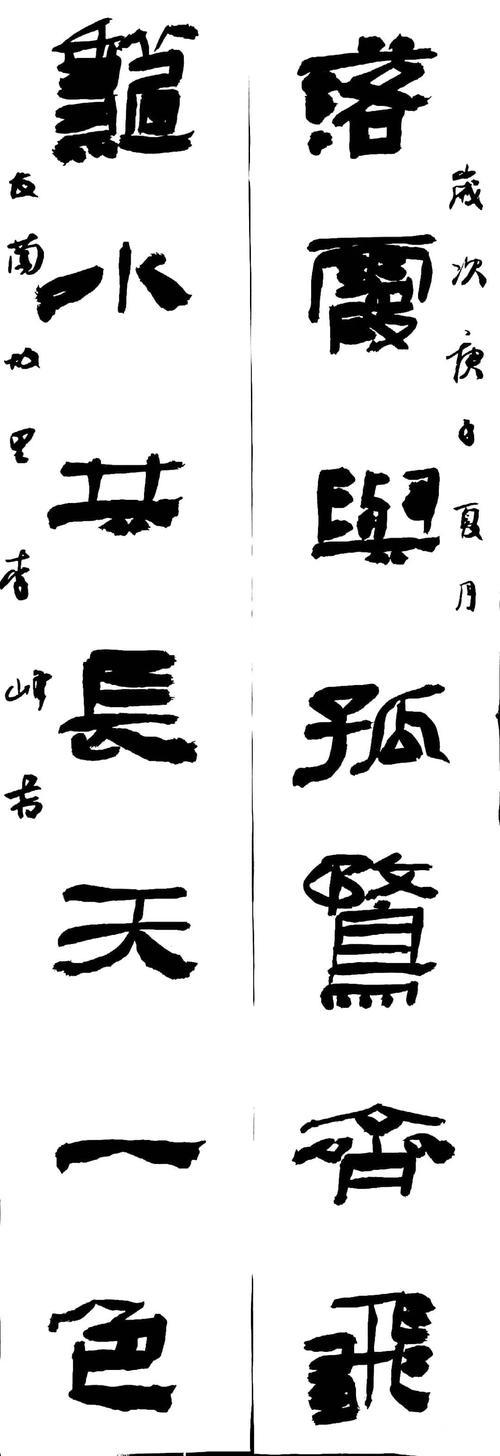 歲次庚子夏月
落霞與孤鶩齊飛
龝水共長天一色
蘭坡里李峰書